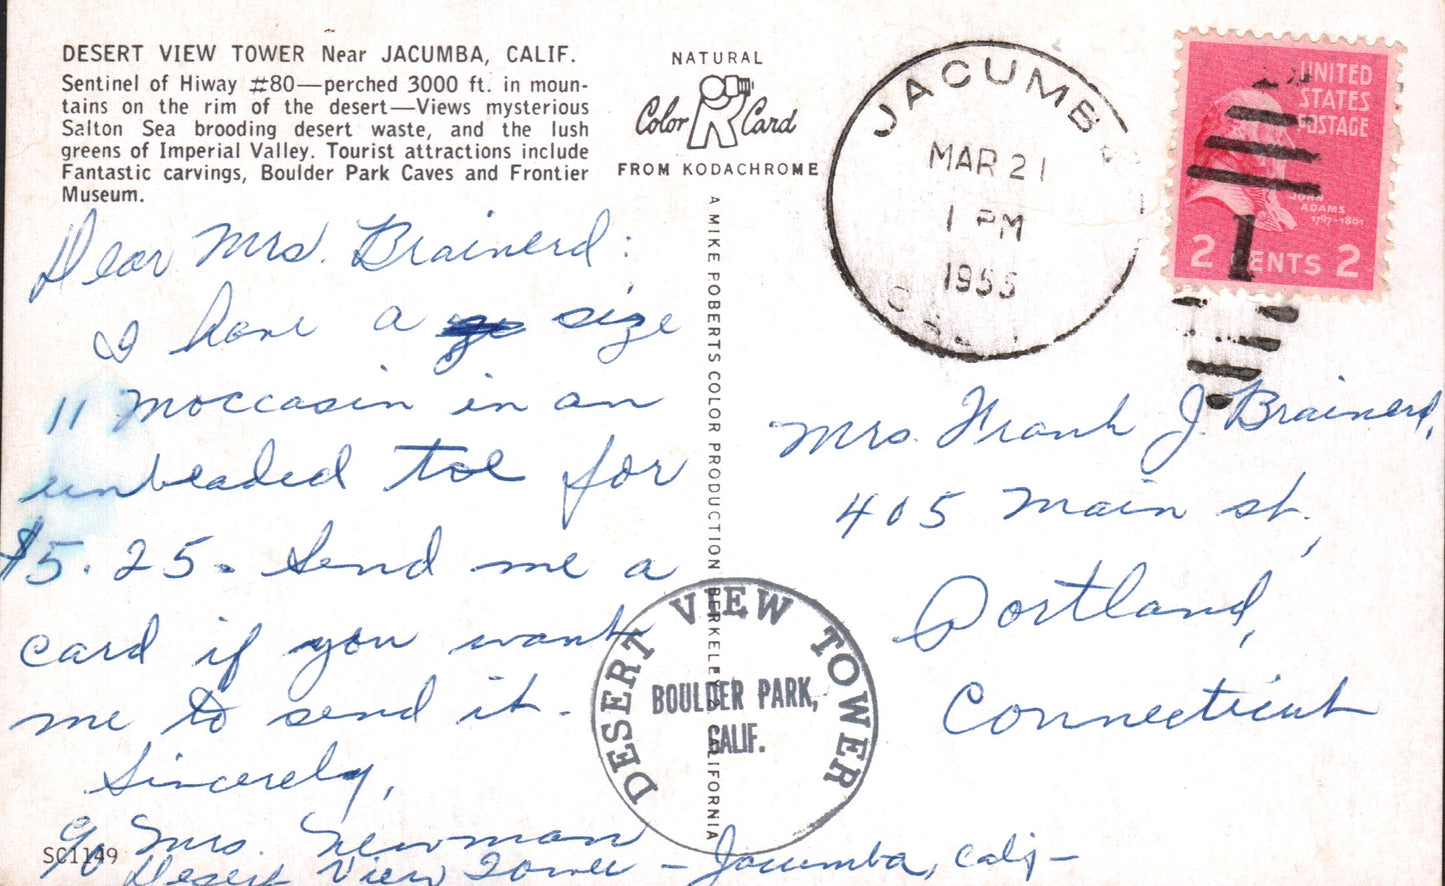 DESERT VIEW TOWER Near JACUMBA, CALIF.
Sentinel of Hiway #80—perched 3000 ft. in moun-
tains on the rim of the desert—Views mysterious
Salton Sea brooding desert waste, and the lush
greens of Imperial Valley. Tourist attractions include
Fantastic carvings, Boulder Park Caves and Frontier
Museum.
NATURAL
Color Card
FROM KODACHROME
A MIKE ROBERTS COLOR PRODUCTION BERKELEY 2, CALIFORNIA
JACUMB
MAR 21
1 PM
1955
CAL
UNITED
STATES
POSTAGE
JOHN
ADAMS
1797-1801
2 CENTS 2
1
Dear Mrs. Brainerd:
I have a size
11 moccasin in an
unbeaded toe for
$5.25. Send me a
card if you want
me to send it.
Sincerely,
Mrs. Newman
Desert View Tower - Jacumba, Calif -
SC1149
DESERT VIEW TOWER
BOULDER PARK,
CALIF.
Mrs. Frank J. Brainerd,
405 Main st.,
Portland,
Connecticut